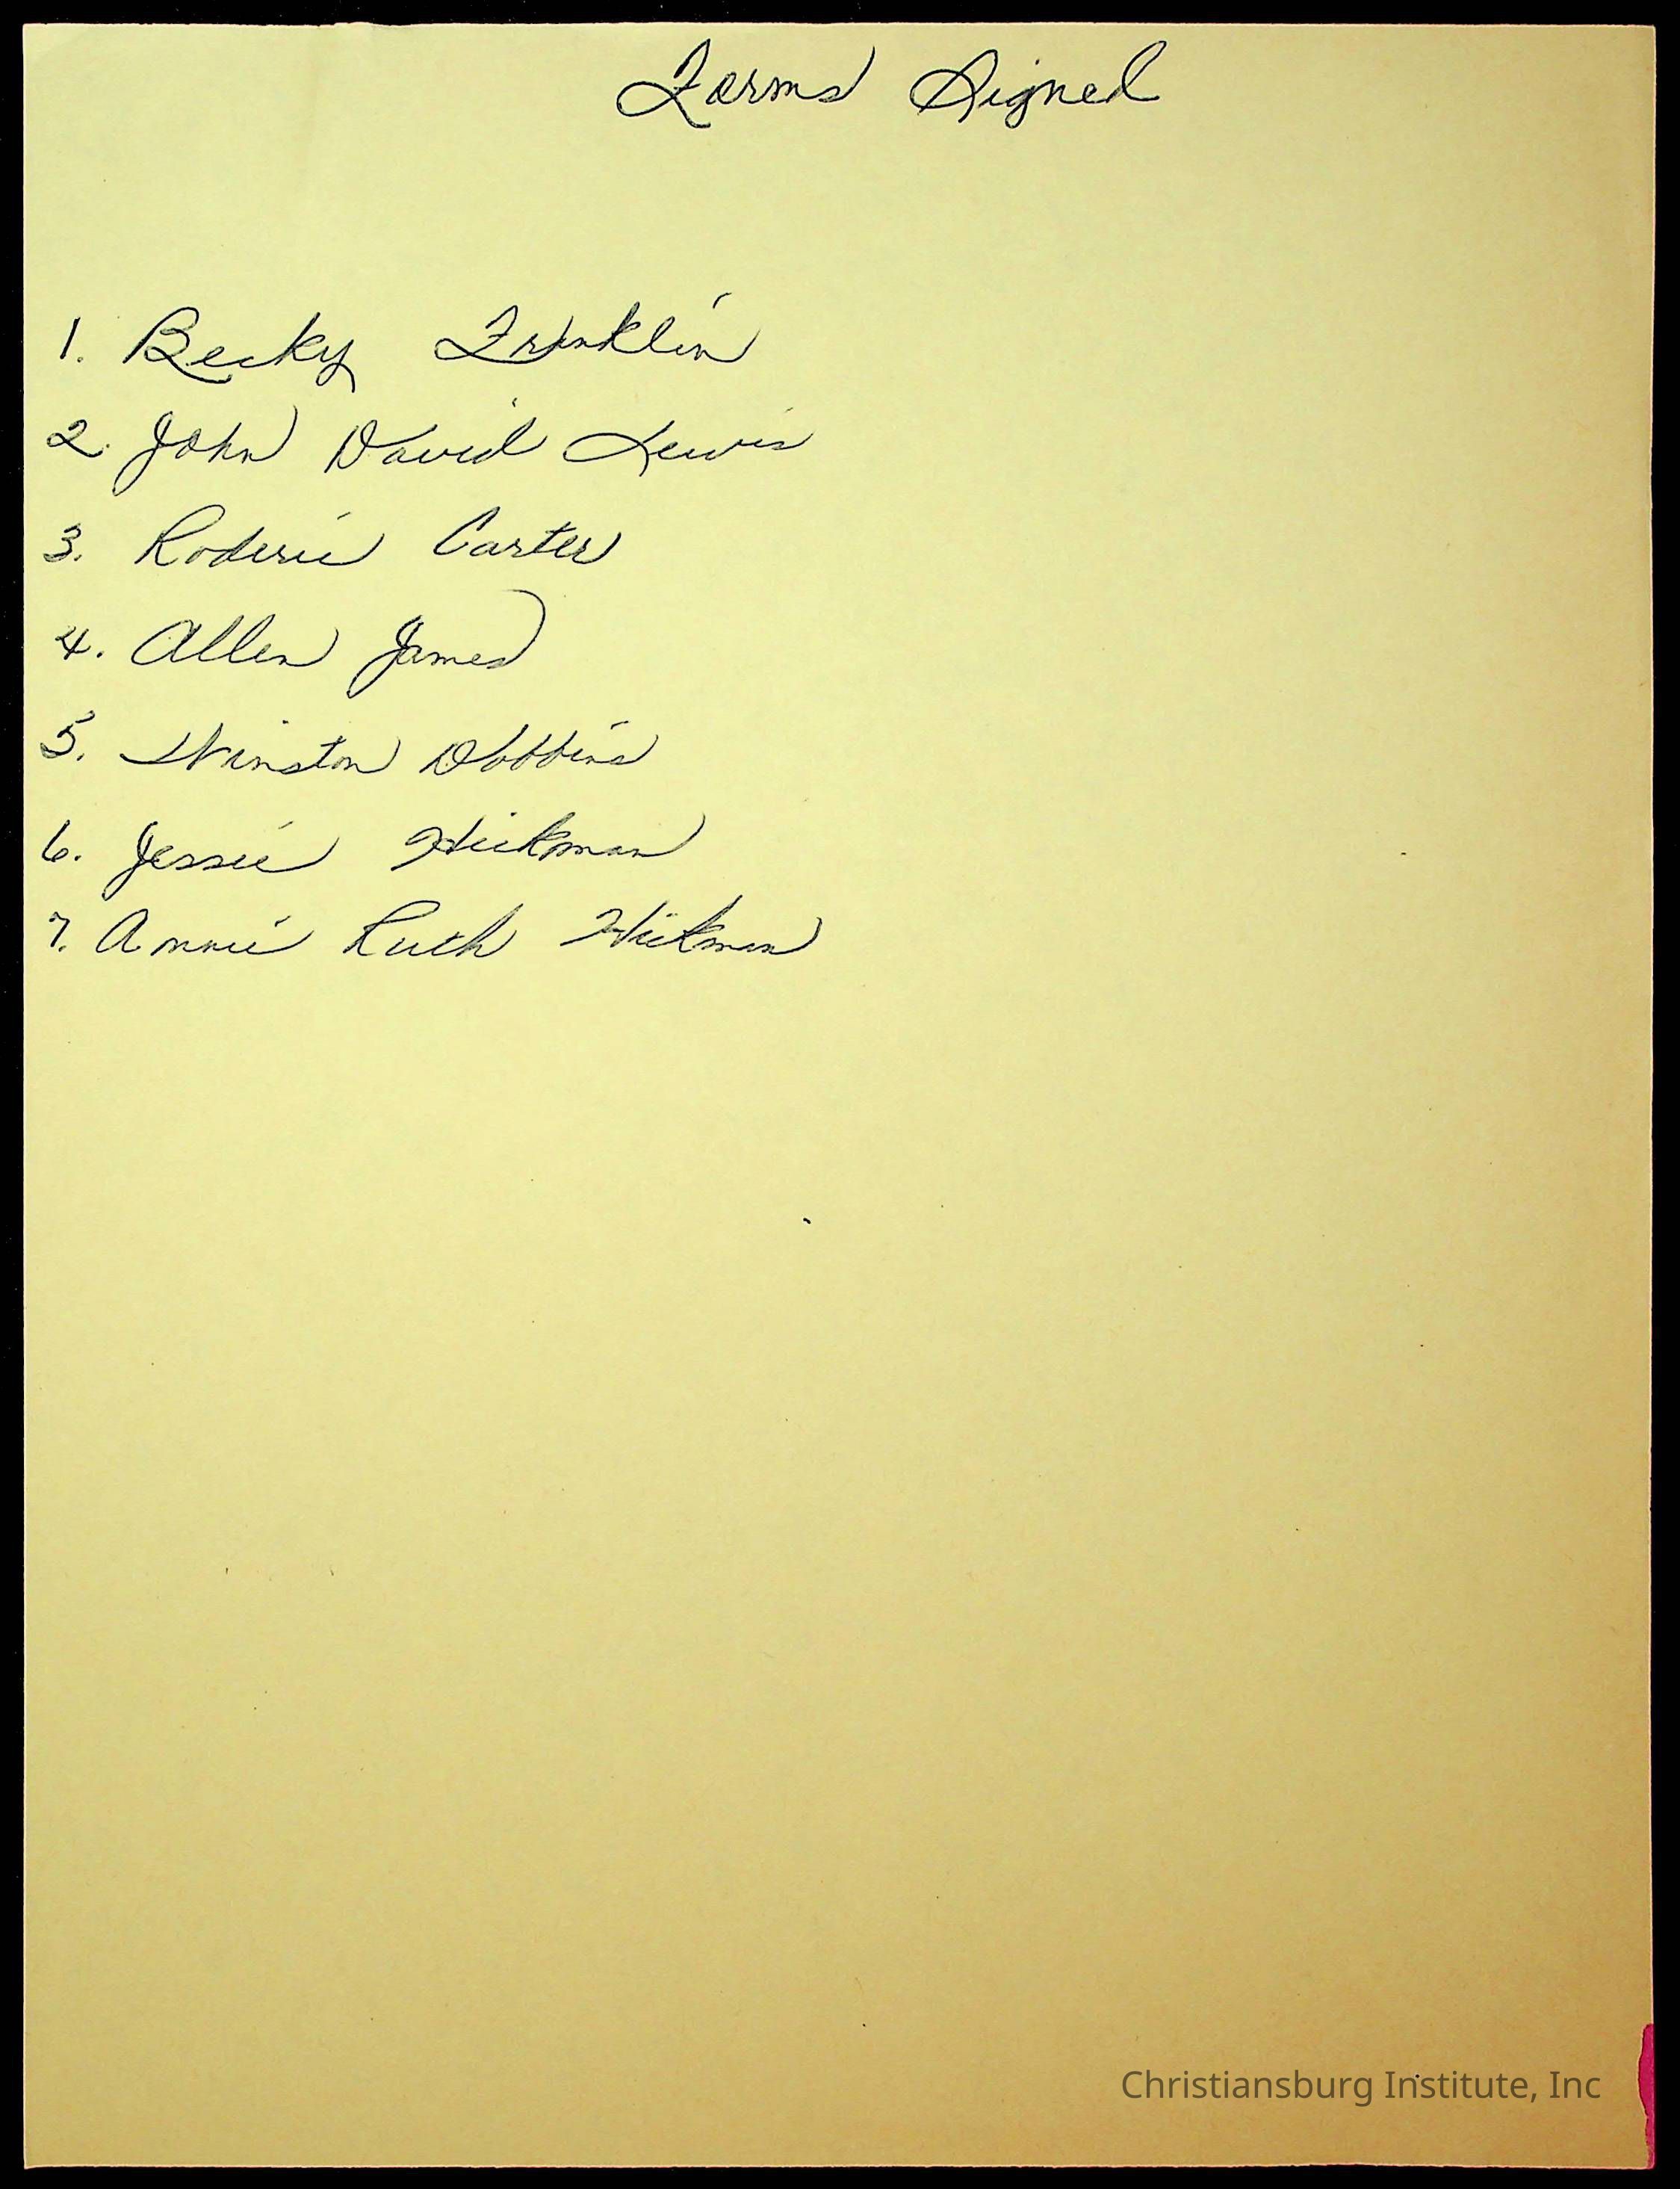 Forms Signed
1. Becky Franklin
2. John David Lewis
3. Roderic Carter
4. Allen James
5. Winston Dobbins
6. Jessie Hickman
7. Annie Ruth Hickman
Christiansburg Institute, Inc